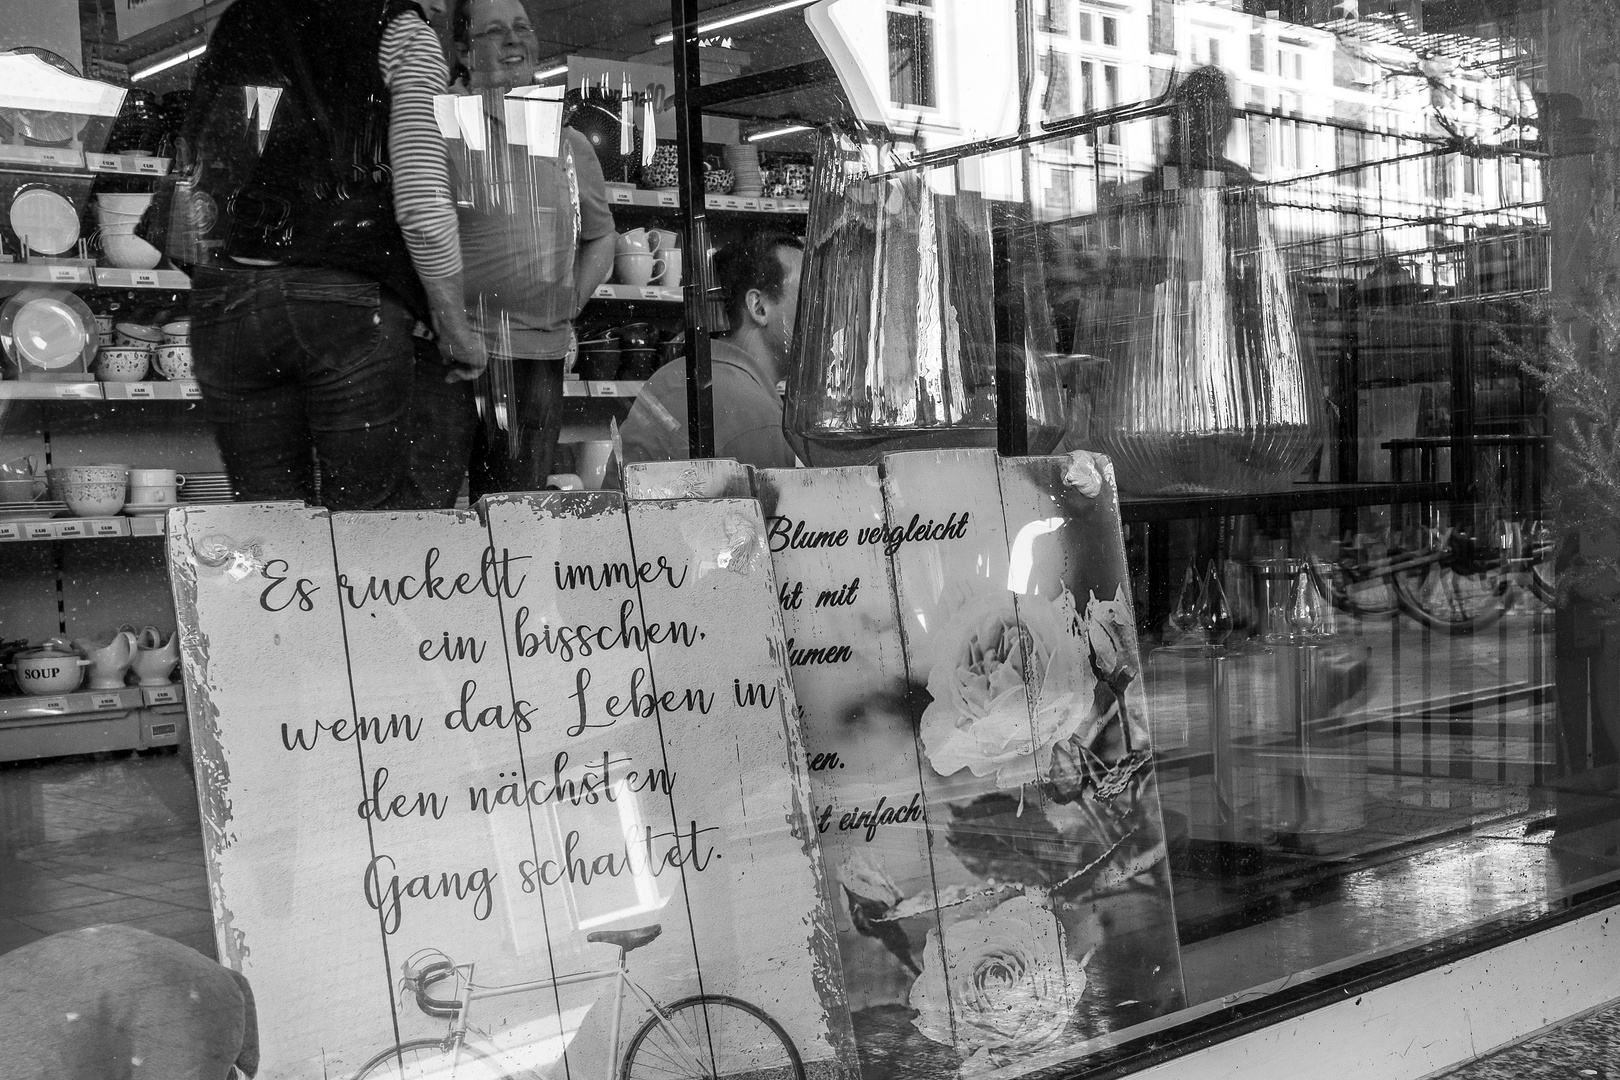 Es ruckelt immer
ein bisschen.
wenn das Leben in
den nächsten
Gang schaltet.
Blume vergleicht
ht mit
lumen
sen.
t einfach.
SOUP